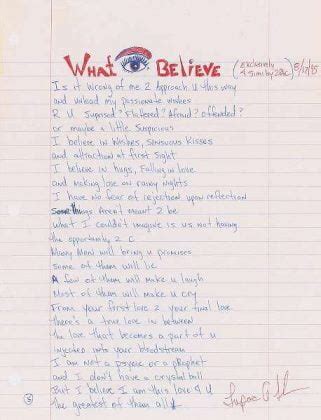 What Believe (Exclusively 4 Simi by 2Pac)
Is it wrong of me 2 approach U this way
and unload my passionate wishes
R U Suprised? Flattered? Afraid? offended?
or maybe a little Suspicious
I believe in Wishes, Sensuous Kisses
and attraction at first Sight
I believe in hugs, Falling in love
and making love on rainy nights
I have no fear of rejection upon reflection
Somethings Arent meant 2 be
what I couldn't imagine is us not having
the opportunity 2 C
Many Men will bring u promises
some of them will lie
A few of them will make u laugh
Most of them will make u cry
From your first love 2 your final love
there's a true love in between
the love that becomes a part of u
injected into your bloodstream
I am not a psychic or a prophet
and I don't have a crystal ball
but I believe I am this love 4 U
the greatest of them all!